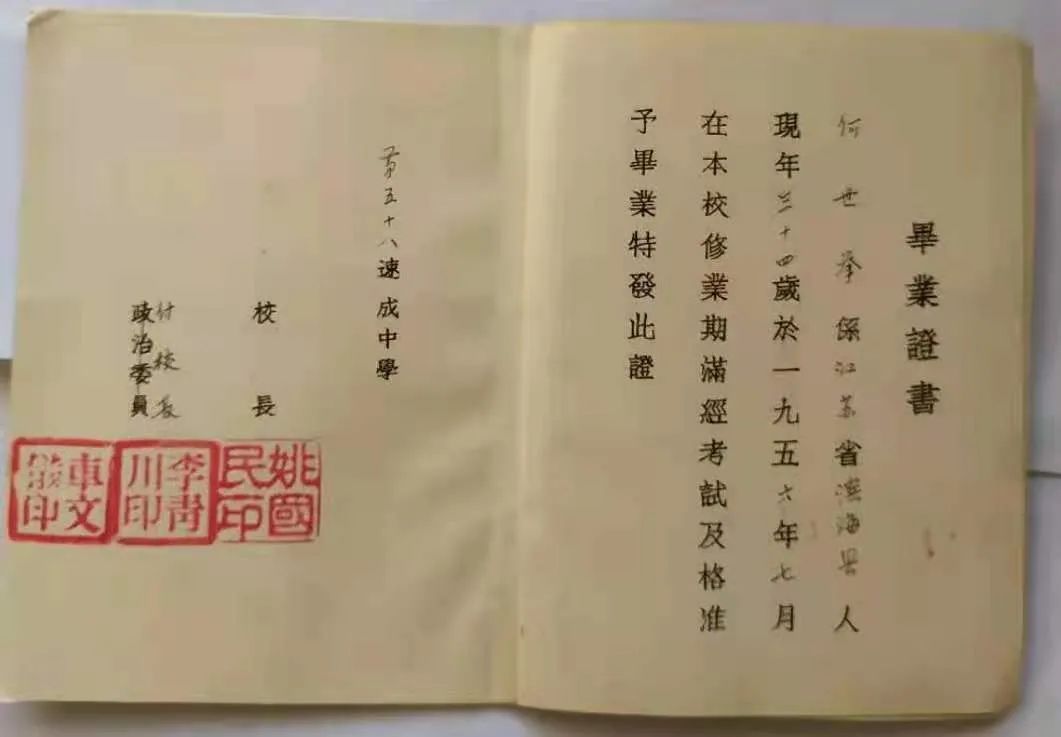 畢業證書
何世举係江苏省濱海县人
現年三十四歲於一九五六年七月
在本校修業期滿經考試及格准
予畢業特發此證
第五十八速成中學
校長
付校長
政治委員
姚國民印
李青川印
車文印